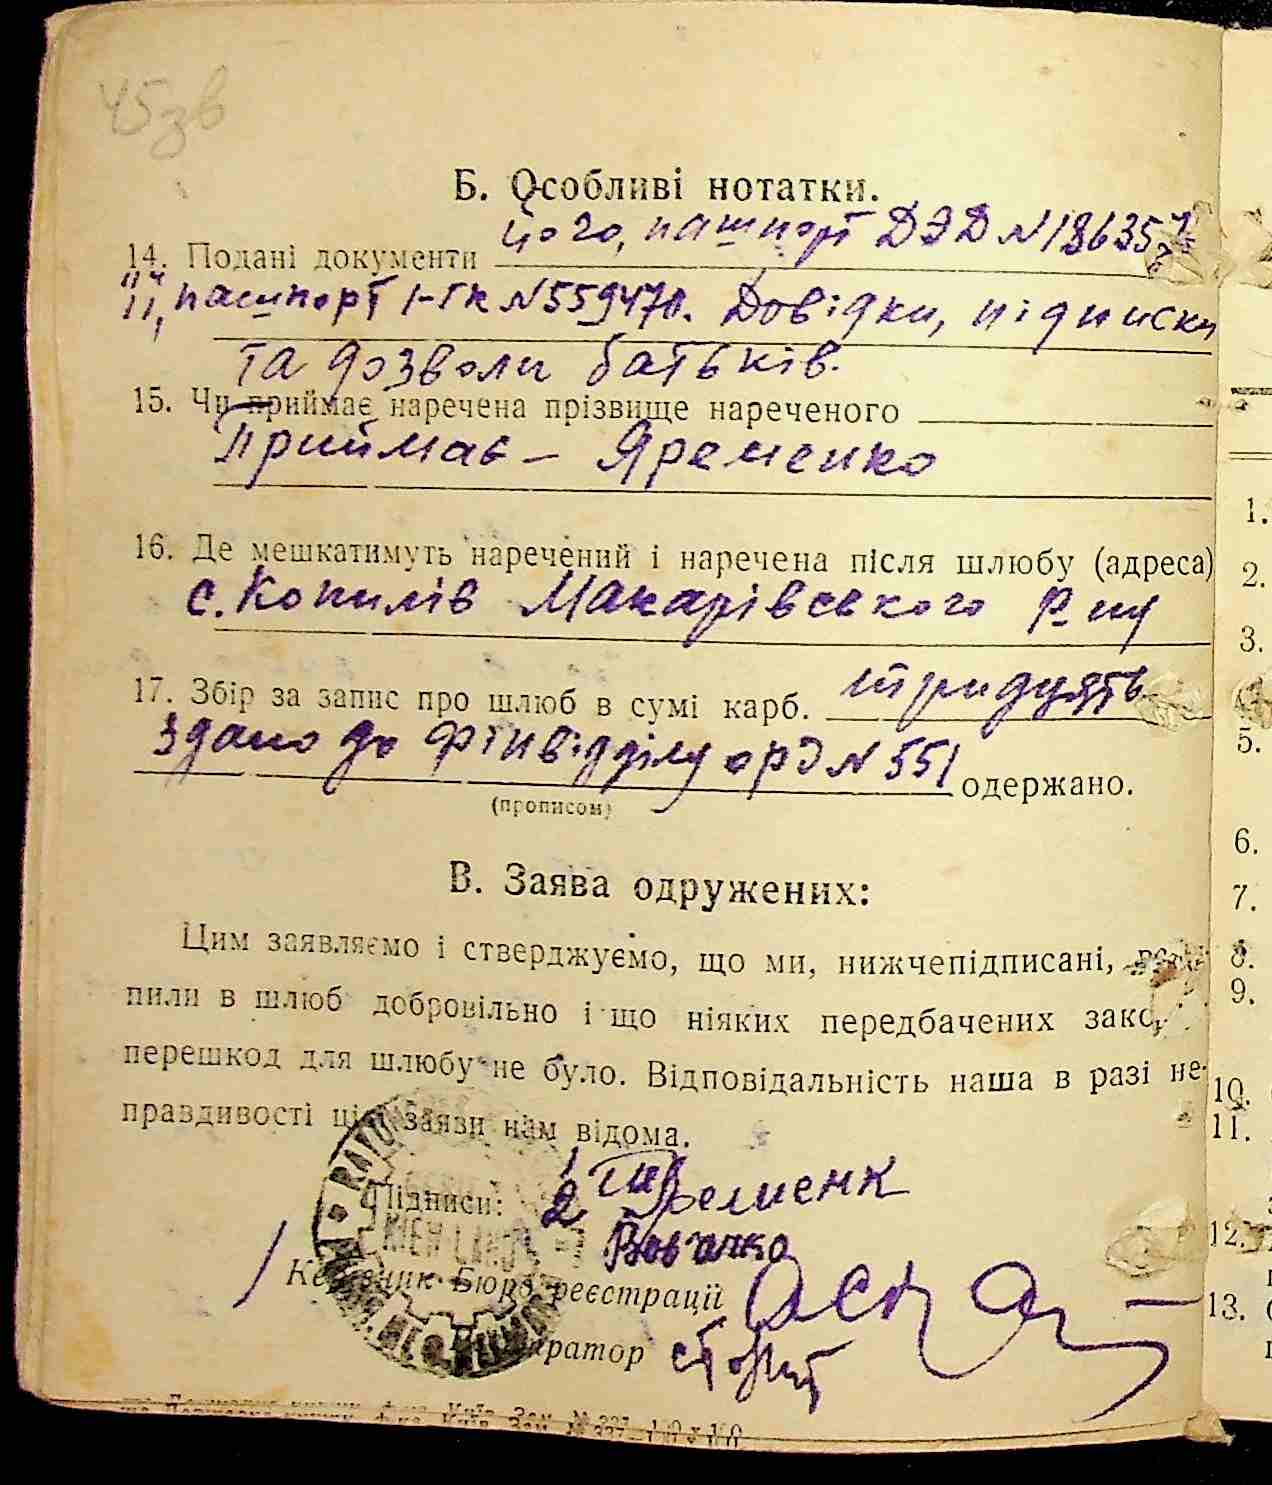 45зв
Б. Особливі нотатки.
14. Подані документи його, пашпорт ДЭД №186357
її, пашпорт І-ГК №559470. Довідки, підписки
та дозволи батьків.
15. Чи приймає наречена прізвище нареченого
Приймає – Яременко
16. Де мешкатимуть наречений і наречена після шлюбу (адреса)
с. Копилів Макарівського р-ну
17. Збір за запис про шлюб в сумі карб. тридцять
Здано до Фінвідділу орд №551 одержано.
(прописом)
В. Заява одружених:
Цим заявляємо і стверджуємо, що ми, нижчепідписані,
пили в шлюб добровільно і що ніяких передбачених зако
перешкод для шлюбу не було. Відповідальність наша в разі не-
правдивості цієї заяви нам відома.
Підписи: 1
2
Керівник Бюро реєстрації
1.
2.
3.
5.
6.
7.
8.
9.
10.
11.
12.
13.